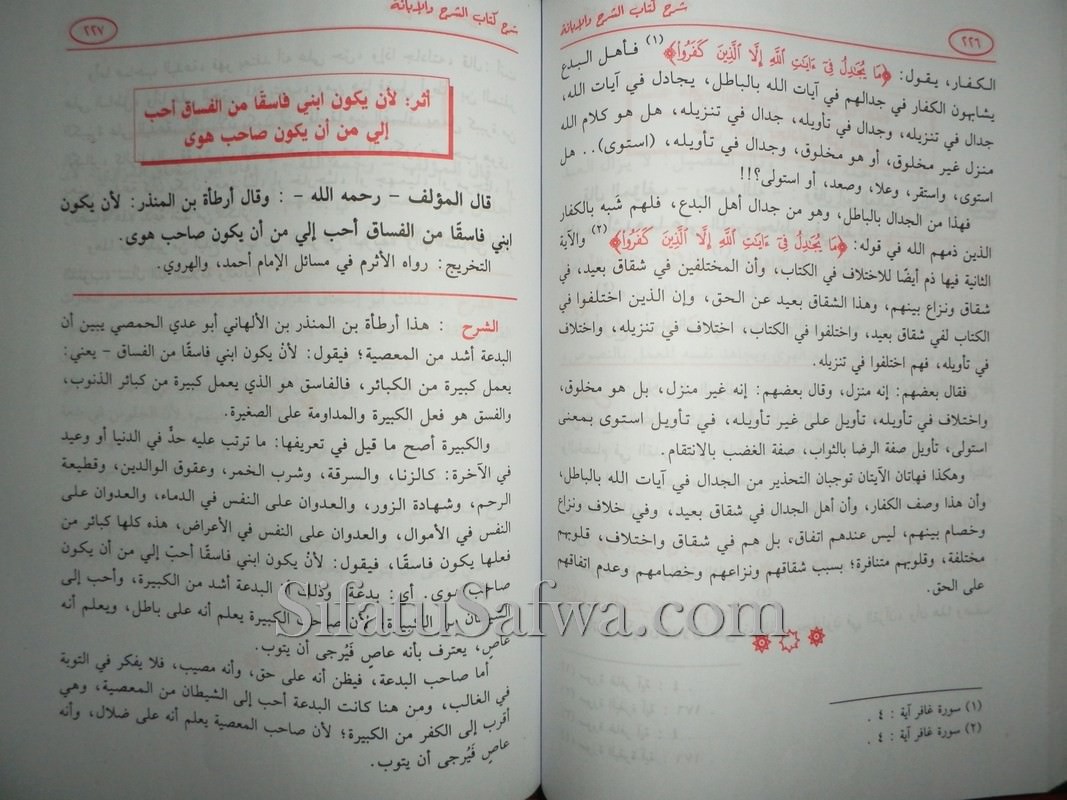 شرح كتاب الشرح والإبانة
٢٢٦
الكفار، يقول: ﴿مَا يُجَٰدِلُ فِىٓ ءَايَٰتِ ٱللَّهِ إِلَّا ٱلَّذِينَ كَفَرُوا۟﴾ (١) فأهل البدع
يشابهون الكفار في جدالهم في آيات الله بالباطل، يجادل في آيات الله،
جدال في تنزيله، وجدال في تأويله، جدال في تنزيله، هل هو كلام الله
منزل غير مخلوق، أو هو مخلوق، وجدال في تأويله، (استوى).. هل
استوى، واستقر، وعلا، وصعد، أو استولى؟!!
فهذا من الجدال بالباطل، وهو من جدال أهل البدع، فلهم شبه بالكفار
الذين ذمهم الله في قوله: ﴿مَا يُجَٰدِلُ فِىٓ ءَايَٰتِ ٱللَّهِ إِلَّا ٱلَّذِينَ كَفَرُوا۟﴾ (٢) والآية
الثانية فيها ذم أيضًا للاختلاف في الكتاب، وأن المختلفين في شقاق بعيد، في
شقاق ونزاع بينهم، وهذا الشقاق بعيد عن الحق، وإن الذين اختلفوا في
الكتاب لفي شقاق بعيد، واختلفوا في الكتاب، اختلاف في تنزيله، واختلاف
في تأويله، فهم اختلفوا في تنزيله.
فقال بعضهم: إنه منزل، وقال بعضهم: إنه غير منزل، بل هو مخلوق،
واختلاف في تأويله، تأويل على غير تأويله، في تأويل استوى بمعنى
استولى، تأويل صفة الرضا بالثواب، صفة الغضب بالانتقام.
وهكذا فهاتان الآيتان توجبان التحذير من الجدال في آيات الله بالباطل،
وأن هذا وصف الكفار، وأن أهل الجدال في شقاق بعيد، وفي خلاف ونزاع
وخصام بينهم، ليس عندهم اتفاق، بل هم في شقاق واختلاف، قلوبهم
مختلفة، وقلوبهم متنافرة؛ بسبب شقاقهم ونزاعهم وخصامهم وعدم اتفاقهم
على الحق.
(١) سورة غافر آية : ٤ .
(٢) سورة غافر آية : ٤ .
شرح كتاب الشرح والإبانة
٢٢٧
أثر: لأن يكون ابني فاسقًا من الفساق أحب
إلي من أن يكون صاحب هوى
قال المؤلف – رحمه الله – : وقال أرطأة بن المنذر: لأن يكون
ابني فاسقًا من الفساق أحب إلي من أن يكون صاحب هوى.
التخريج: رواه الأثرم في مسائل الإمام أحمد، والهروي.
الشرح : هذا أرطأة بن المنذر بن الألهاني أبو عدي الحمصي يبين أن
البدعة أشد من المعصية؛ فيقول: لأنْ يكون ابني فاسقًا من الفساق – يعني:
يعمل كبيرة من الكبائر، فالفاسق هو الذي يعمل كبيرة من كبائر الذنوب،
والفسق هو فعل الكبيرة والمداومة على الصغيرة.
والكبيرة أصح ما قيل في تعريفها: ما ترتب عليه حدٌّ في الدنيا أو وعيد
في الآخرة: كالزنا، والسرقة، وشرب الخمر، وعقوق الوالدين، وقطيعة
الرحم، وشهادة الزور، والعدوان على النفس في الدماء، والعدوان على
النفس في الأموال، والعدوان على النفس في الأعراض، هذه كلها كبائر من
فعلها يكون فاسقًا، فيقول: لأنْ يكون ابني فاسقًا أحبّ إلي من أن يكون
صاحب هوى. أي: بدعة، وذلك أن البدعة أشد من الكبيرة، وأحب إلى
الشيطان من الكبيرة؛ لأن صاحب الكبيرة يعلم أنه على باطل، ويعلم أنه
عاصٍ، يعترف بأنه عاصٍ فَيُرجى أن يتوب.
أما صاحب البدعة، فيظن أنه على حق، وأنه مصيب، فلا يفكر في التوبة
في الغالب، ومن هنا كانت البدعة أحب إلى الشيطان من المعصية، وهي
أقرب إلى الكفر من الكبيرة؛ لأن صاحب المعصية يعلم أنه على ضلال، وأنه
عاصٍ فَيُرجى أن يتوب.
SifatuSafwa.com